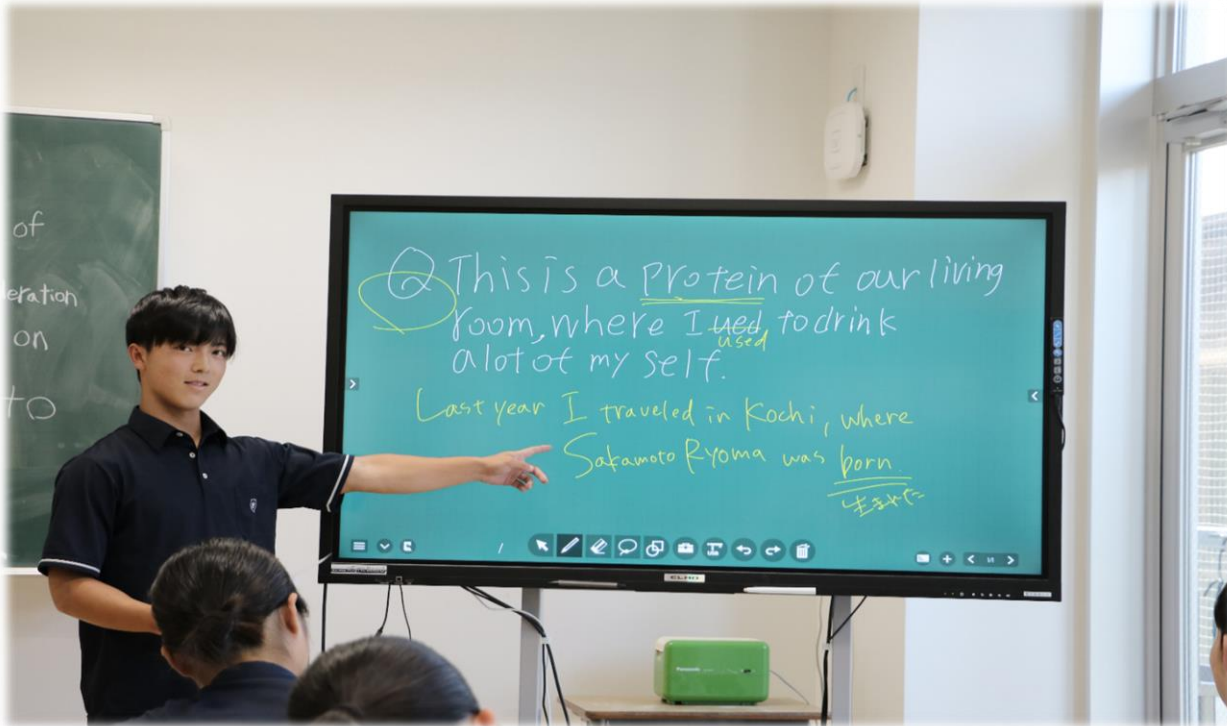 of
eration
on
to
Q This is a protein of our living
room, where I ued to drink
used
a lot of my self.
Last year I traveled in Kochi, where
Sakamoto Ryoma was born.
生まれた
ELMO
Panasonic